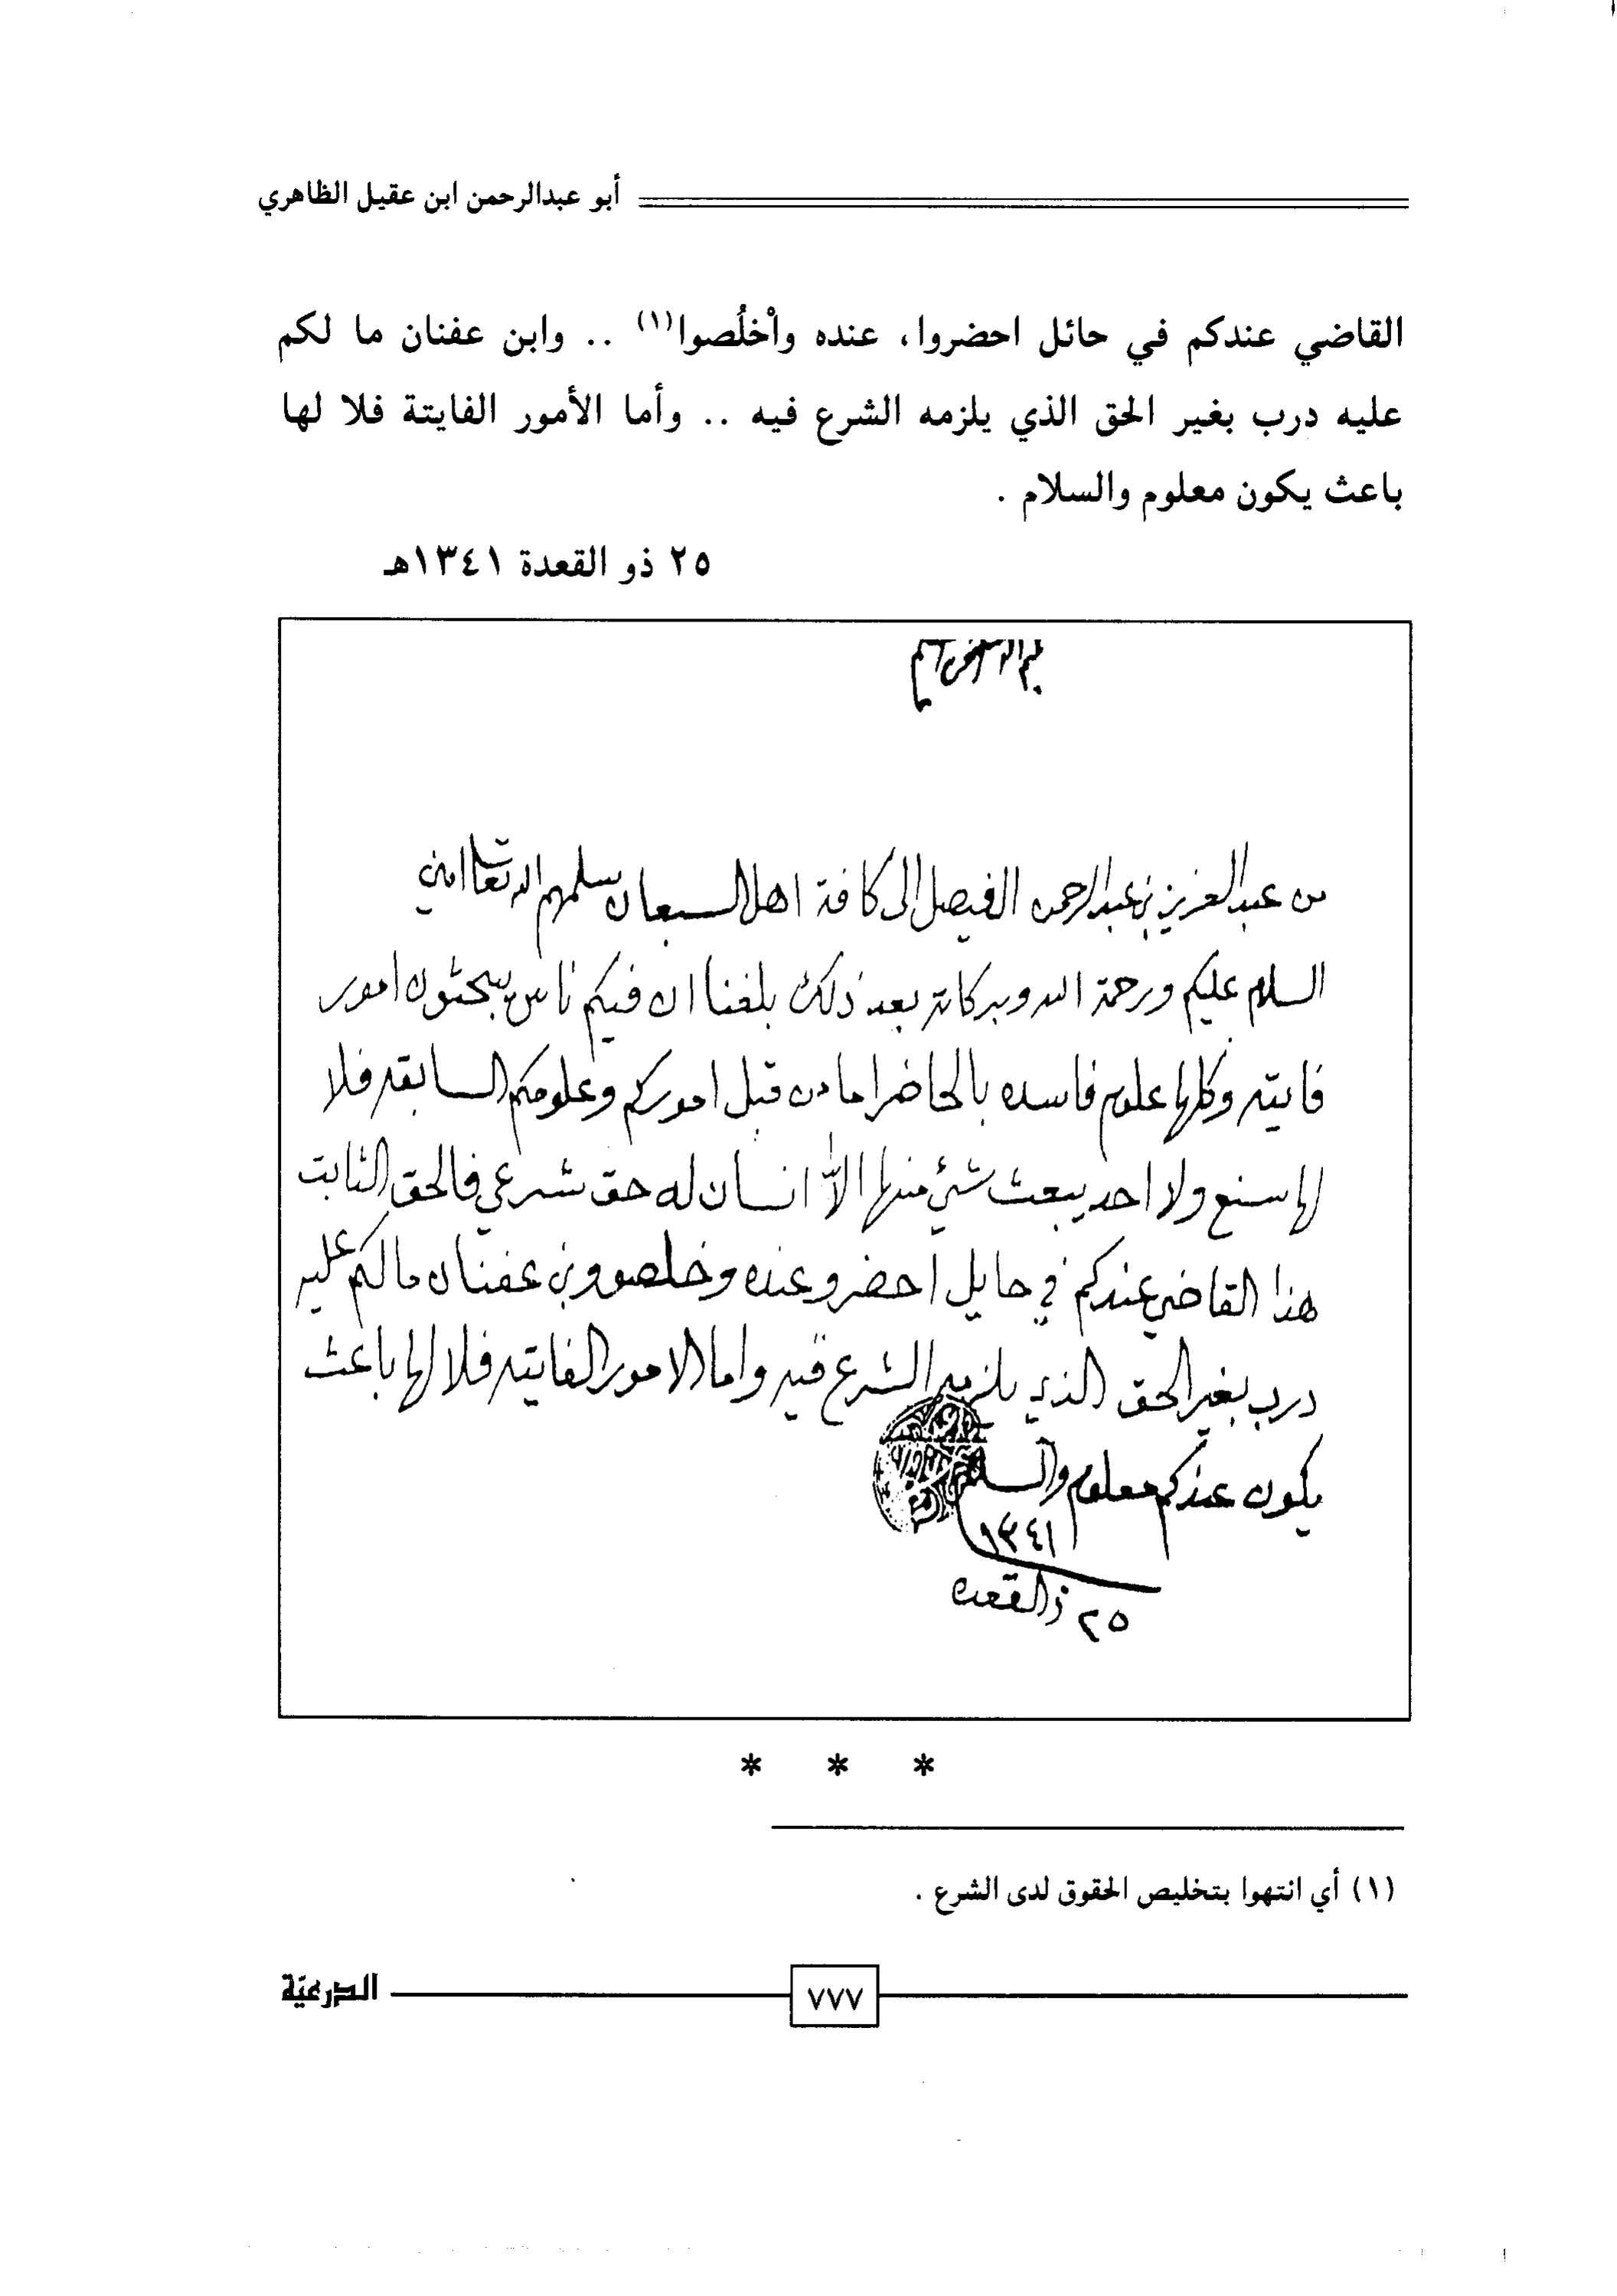 أبو عبدالرحمن ابن عقيل الظاهري
القاضي عندكم في حائل احضروا، عنده وأْخلُصوا(١) .. وابن عفنان ما لكم
عليه درب بغير الحق الذي يلزمه الشرع فيه .. وأما الأمور الفايتة فلا لها
باعث يكون معلوم والسلام .
٢٥ ذو القعدة ١٣٤١هـ
بسم الله الرحمن الرحيم
من عبدالعزيز بن عبدالرحمن الفيصل الى كافة اهل السبعان سلمهم الله تعالى امين
السلام عليكم ورحمة الله وبركاته بعد ذلك بلغنا ان فيكم ناس يبحثون امور
فايته وكلها علوم فاسده بالحاضر اما من قبل اموركم وعلومكم السابقه فلا
لها سنع ولا احد يبعث شئ منها الاّ انسان له حق شرعي فالحق الثابت
هذا القاضي عندكم في حايل احضرو عنده وخلصو وبن عفنان مالكم عليه
درب بغير الحق الذي يلزمه الشرع فيه واما الامور الفايته فلا لها باعث
يكون عندكم معلوم والسلام
١٣٤١
٢٥ ذالقعده
* * *
(١) أي انتهوا بتخليص الحقوق لدى الشرع .
٧٧٧
الدرعيّة